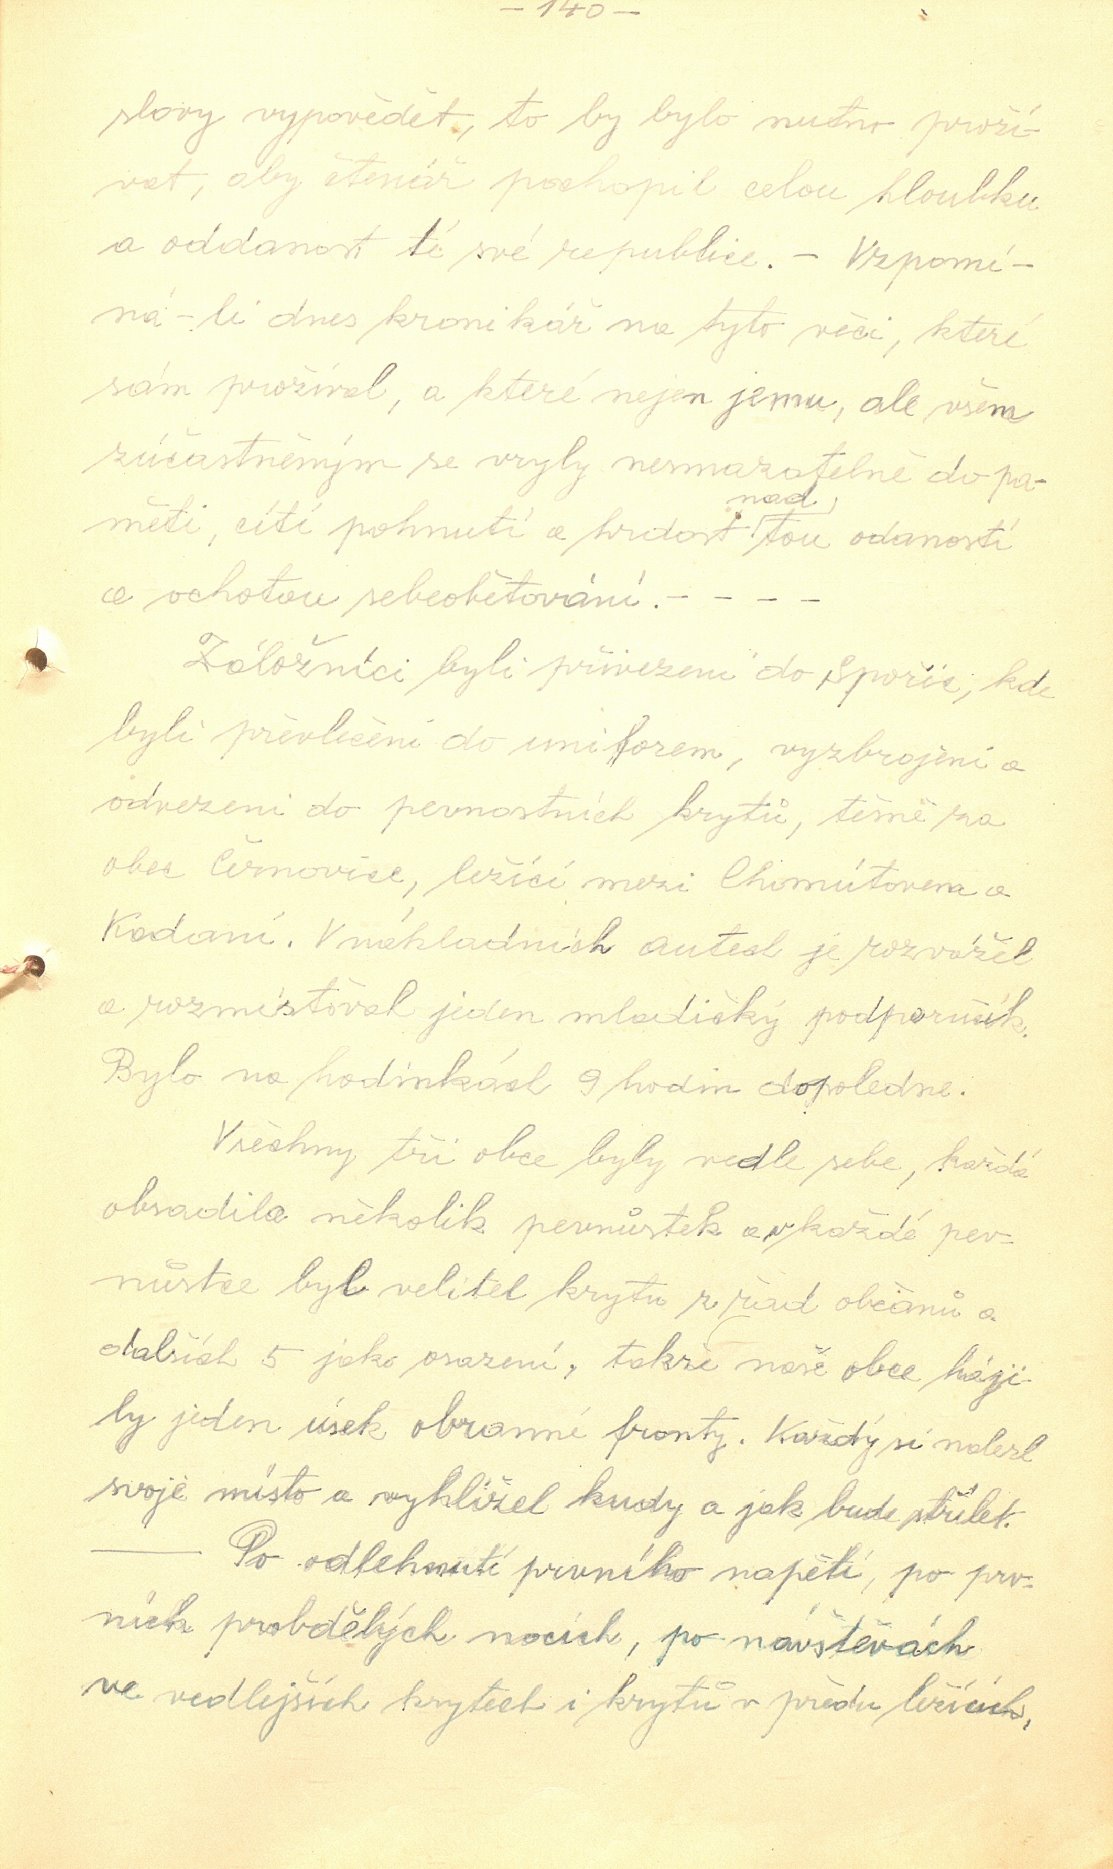 - 140 -
slovy vypovědět, to by bylo nutno proží-
vat, aby čtenář pochopil celou hloubku
a oddanost té své republice. - Vzpomí-
ná-li dnes kronikář na tyto věci, které
sám prožíval, a které nejen jemu, ale všem
zúčastněným se vryly nesmazatelně do pa-
nad
měti, cítí pohnutí a hrdost tou odaností
a ochotou sebeobětování. - - - -
Záložníci byli přivezeni do Spořic, kde
byli převlečeni do uniforem, vyzbrojeni a
odvezeni do pevnostních krytů, těsně za
obec Černovice, ležící mezi Chomútovem a
Kadaní. V nákladních autech je rozvážel
a rozmísťoval jeden mladičký podporučík.
Bylo na hodinkách 9 hodin dopoledne.
Všechny tři obce byly vedle sebe, každá
obsadila několik pevnůstek a v každé pev-
nůstce byl velitel krytu z řad občanů a
dalších 5 jako osazení, takže naše obce háji-
ly jeden úsek obranné fronty. Každý si nalezl
svoje místo a vyhlížel kudy a jak bude střílet.
Po odlehnutí prvního napětí, po prv-
ních probdělých nocích, po návštěvách
ve vedlejších krytech i krytů v předu ležících,